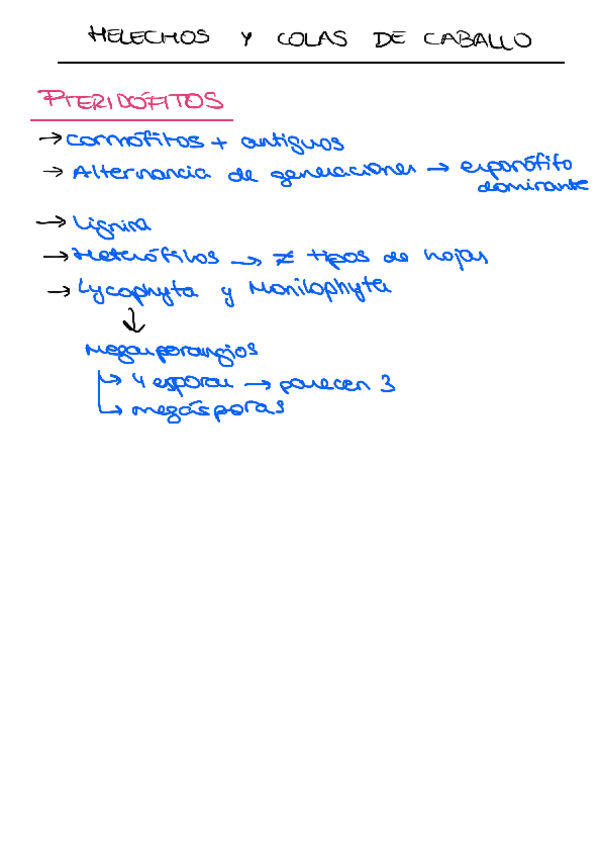 HELECHOS Y COLAS DE CABALLO
PTERIDÓFITOS
→ cormófitos + antiguos
→ Alternancia de generaciones → esporófito
dominante
→ Lignina
→ Heterófilos → ≠ tipos de hojas
→ Lycophyta y Monilophyta
↓
Megasporangios
↳ 4 esporas → parecen 3
↳ megásporas